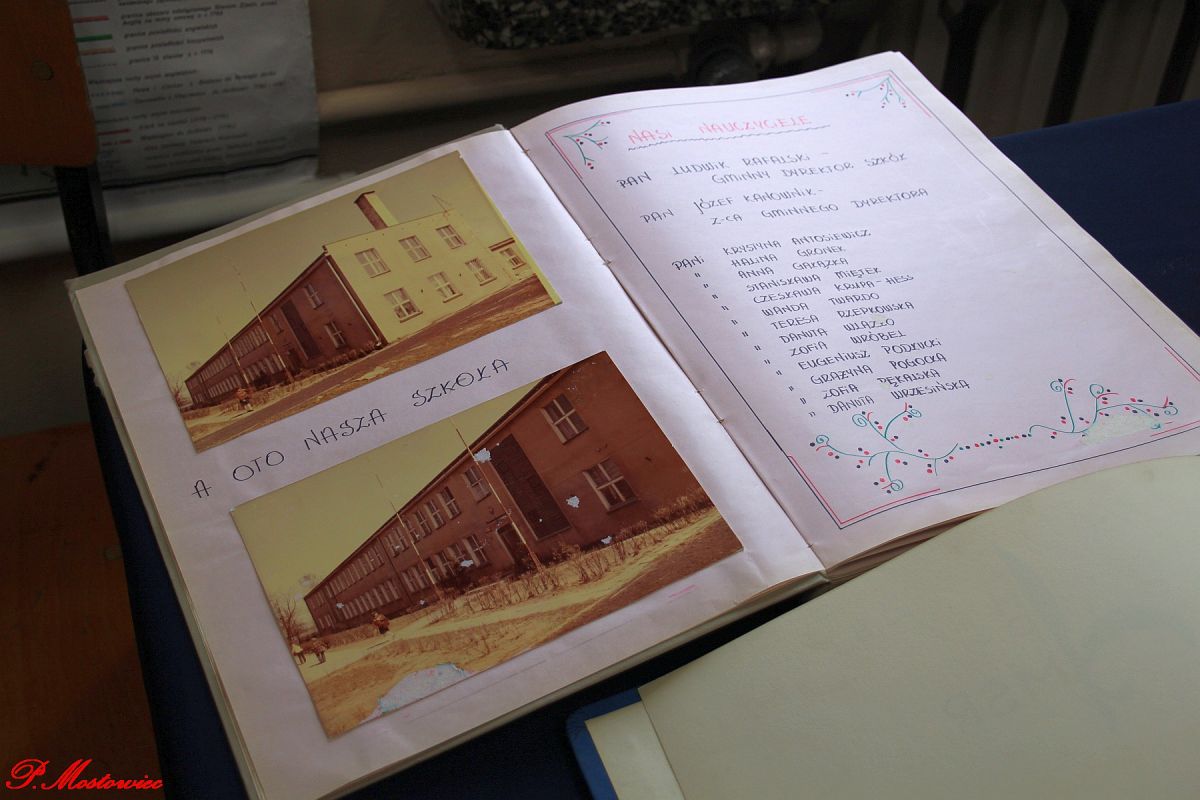 A OTO NASZA SZKOŁA
NASI NAUCZYCIELE
PAN LUDWIK RAFALSKI -
GMINNY DYREKTOR SZKÓŁ
PAN JÓZEF KANOWNIK -
Z-CA GMINNEGO DYREKTORA
PANI KRYSTYNA ANTOSIEWICZ
" HALINA GRONEK
" ANNA GAŁĄZKA
" STANISŁAWA MIĘTEK
" CZESŁAWA KRUPA-HESS
" WANDA TWARDO
" TERESA RZEPKOWSKA
" DANUTA WIĄZŁO
" ZOFIA WRÓBEL
" EUGENIUSZ PODKUCKI
" GRAŻYNA POGOCKA
" ZOFIA PĘKALSKA
" DANUTA WRZESIŃSKA
P. Mostowiec